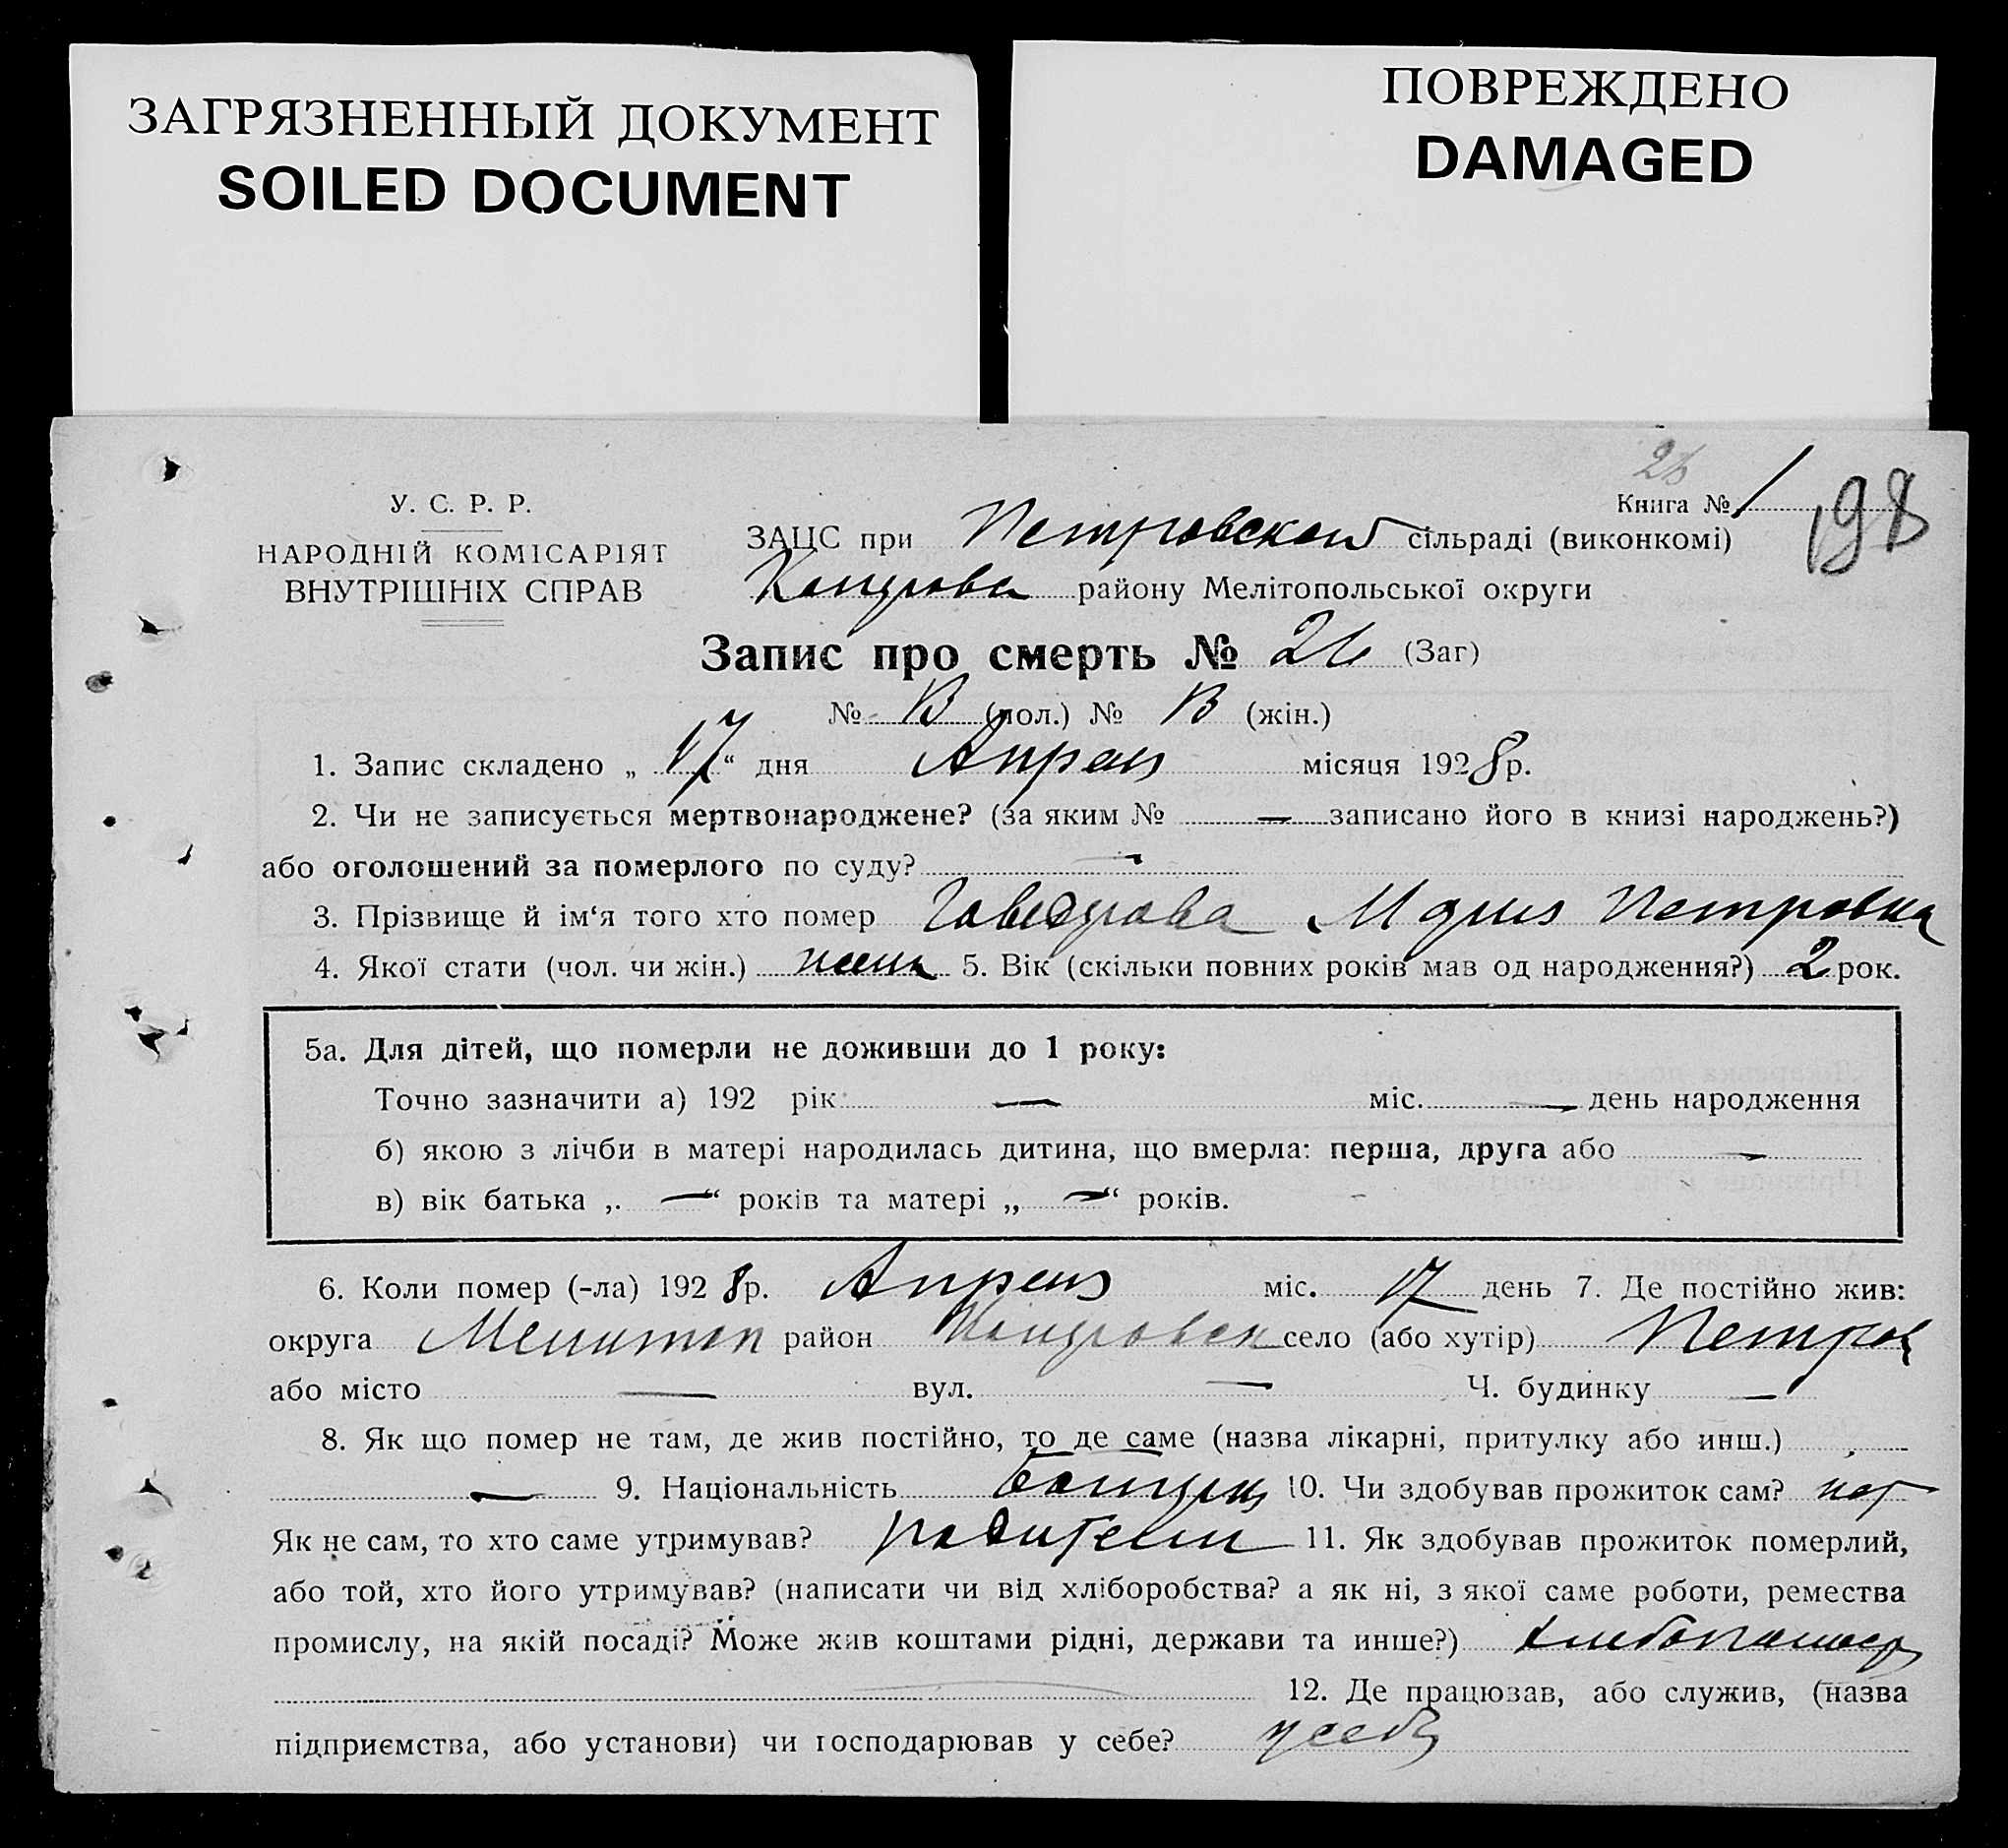 ЗАГРЯЗНЕННЫЙ ДОКУМЕНТ
SOILED DOCUMENT
ПОВРЕЖДЕНО
DAMAGED
Книга № 1
198
У. С. Р. Р.
НАРОДНІЙ КОМІСАРІЯТ
ВНУТРІШНІХ СПРАВ
ЗАЦС при Петровской сільраді (виконкомі)
району Мелітопольської округи
Запис про смерть № 26 (Заг)
№ В (чол.) № В (жін.)
1. Запис складено „ 17 “ дня Апреля місяця 1928 р.
2. Чи не записується мертвонароджене? (за яким № — записано його в книзі народжень?)
або оголошений за померлого по суду? —
3. Прізвище й ім‘я того хто помер Мария Петровна
4. Якої стати (чол. чи жін.) женс 5. Вік (скільки повних років мав од народження?) 2 рок.
5а. Для дітей, що померли не доживши до 1 року:
Точно зазначити а) 192 рік — міс. — день народження
б) якою з лічби в матері народилась дитина, що вмерла: перша, друга або —
в) вік батька „ — “ років та матері „ — “ років.
6. Коли помер (-ла) 1928 р. Апреля міс. 17 день 7. Де постійно жив:
округа Мелитоп район село (або хутір) Петров
або місто — вул. — Ч. будинку —
8. Як що помер не там, де жив постійно, то де саме (назва лікарні, притулку або инш.)
— 9. Національність Болгары 10. Чи здобував прожиток сам? нет
Як не сам, то хто саме утримував? родители 11. Як здобував прожиток померлий,
або той, хто його утримував? (написати чи від хліборобства? а як ні, з якої саме роботи, ремества
промислу, на якій посаді? Може жив коштами рідні, держави та инше?) хлебопашец
12. Де працював, або служив, (назва
підприємства, або установи) чи господарював у себе? у себя